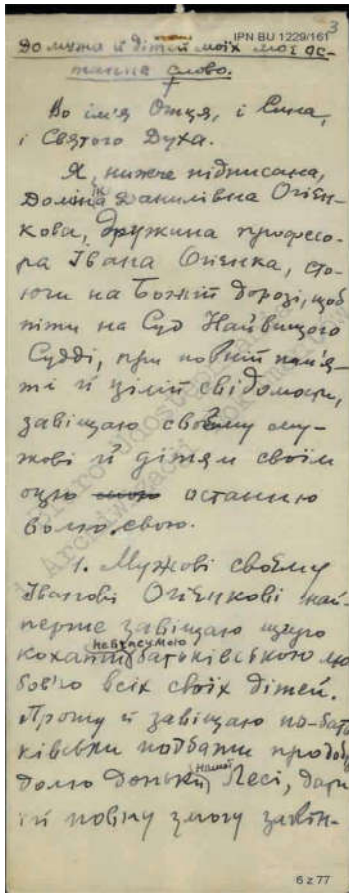 3
IPN BU 1229/161
До мужа й дітей моїх моє ос-
таннє слово.
Во ім'я Отця, і Сина,
і Святого Духа.
Я, нижче підписана,
Домініка Данилівна Огієн-
кова, дружина професо-
ра Івана Огієнка, сто-
ючи на Божій дорозі, щоб
піти на Суд Найвищого
Судді, при повній пам'я-
ті й цілій свідомости,
завіщаю своєму му-
жові й дітям своїм
оцю останню
волю свою.
1. Мужові своєму
Іванові Огієнкові най-
перше завіщаю щиро
кохати батьківською лю-
бов'ю всіх своїх дітей.
Прошу й завіщаю по-бать
ківськи подбати про добру
долю доньки нашої Лесі, дати
їй повну змогу закін-
6 z 77